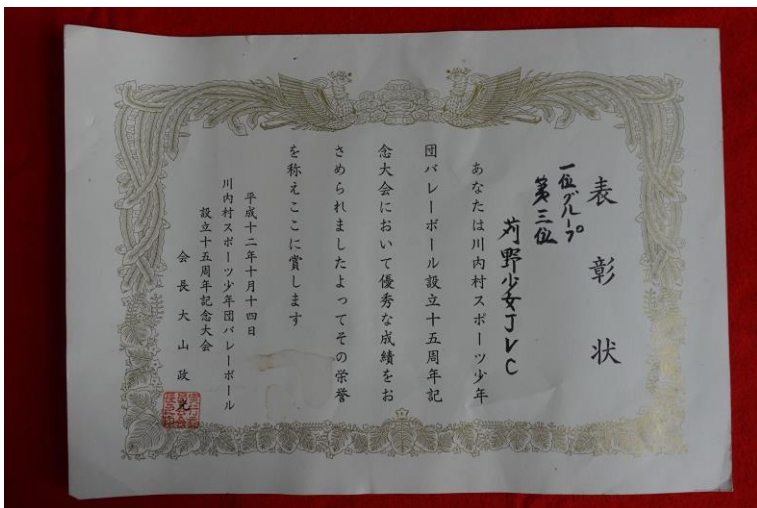 表彰状
一位グループ
第三位
苅野少女JVC
あなたは川内村スポーツ少年
団バレーボール設立十五周年記
念大会において優秀な成績をお
さめられましたよってその栄誉
を称えここに賞します
平成十二年十月十四日
川内村スポーツ少年団バレーボール
設立十五周年記念大会
会長大山政光